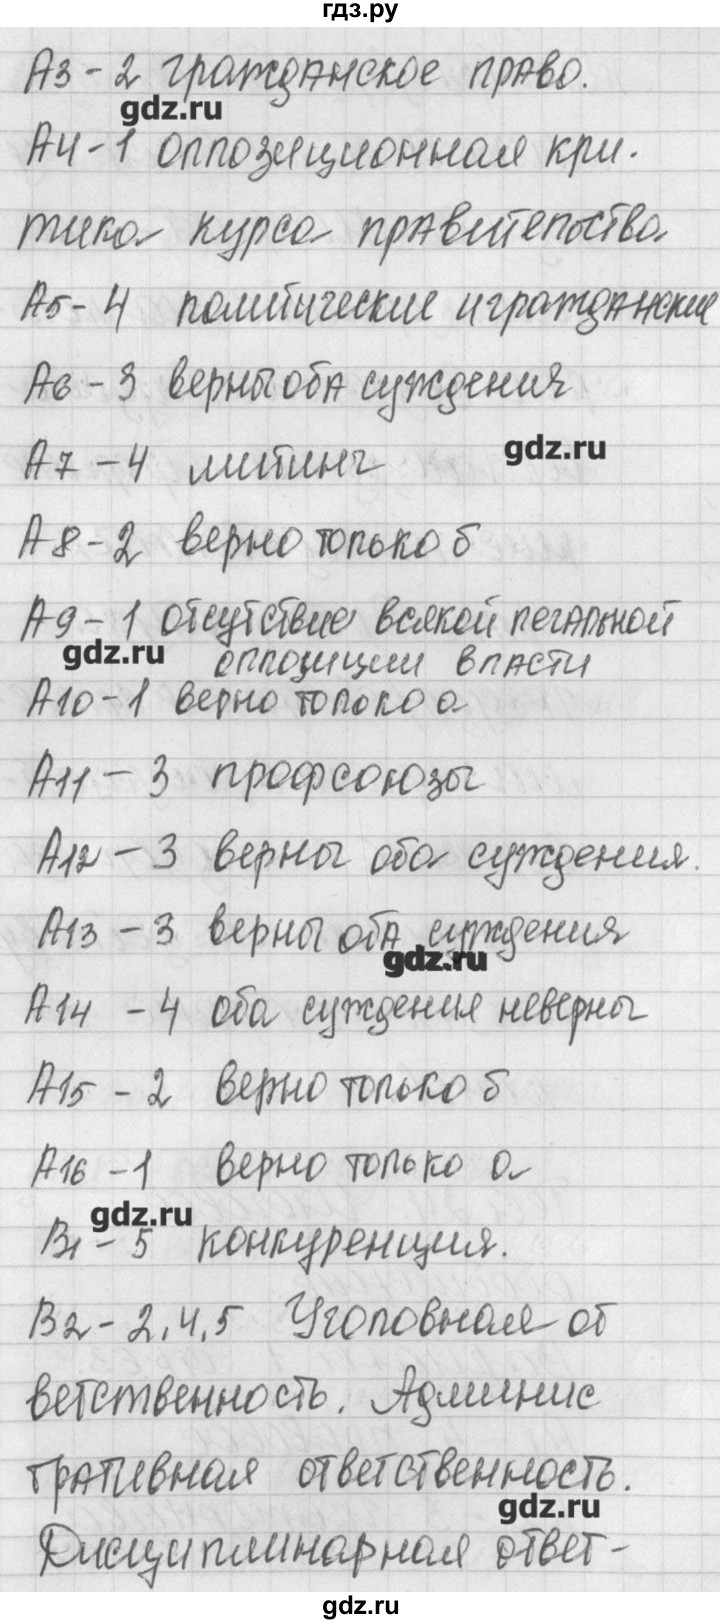 гдз.ру
А3 - 2 гражданское право.
gdz.ru
А4 - 1 оппозиционная кри-
тика курса правительства
А5 - 4 политические и гражданские
А6 - 3 верны оба суждения
gdz.ru
А7 - 4 митинг
А8 - 2 верно только б
А9 - 1 отсутствие всякой легальной
gdz.ru
оппозиции власти
А10 - 1 верно только а
А11 - 3 профсоюзы
А12 - 3 верны оба суждения.
А13 - 3 верны оба суждения
gdz.ru
А14 - 4 оба суждения неверны
А15 - 2 верно только б
А16 - 1 верно только а
gdz.ru
В1 - 5 конкуренция.
В2 - 2,4,5 Уголовная от
ветственность. Админис
тративная ответственность.
gdz.ru
Дисциплинарная ответ-
gdz.ru